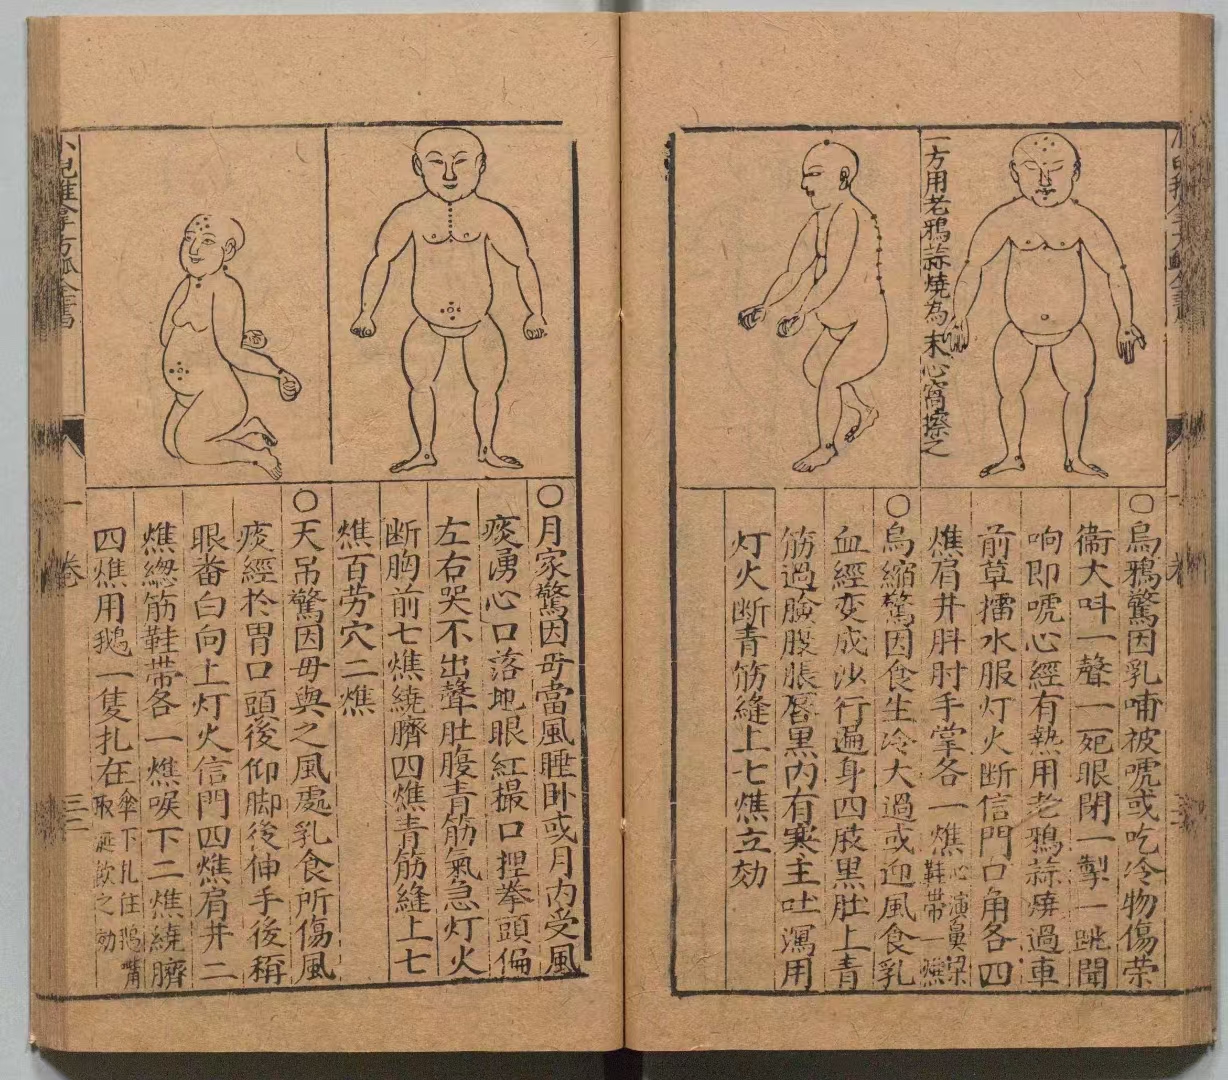 一方用老鴉蒜燒為末心窩擦之
○烏鴉驚因乳哺被唬或吃冷物傷荣
衛大呌一聲一死眼閉一掣一跳聞
响即唬心經有熱用老鴉蒜燒過車
前草擂水服灯火断信門口角各四
燋肩井肘手掌各一燋心演鼻梁鞋帶一燋
○烏縮驚因食生冷大過或迎風食乳
血經变成沙行遍身四肢黑肚上青
筋過臉腹脹唇黒内有寒主吐瀉用
灯火断青筋縫上七燋立効
○月家驚因毋當風睡卧或月内受風
痰湧心口落地眼紅撮口捏拳頭偏
左右哭不出聲肚腹青筋氣急灯火
断胸前七燋繞臍四燋青筋縫上七
燋百劳穴二燋
○天吊驚因毋與之風處乳食所傷風
痰經於胃口頭後仰脚後伸手後稱
眼畨白向上灯火信門四燋肩井二
燋緫筋鞋帶各一燋喉下二燋繞臍
四燋用鵝一隻扎在傘下扎住鵝嘴取涎飲之効
小兒推拿方脉全書
一卷
三